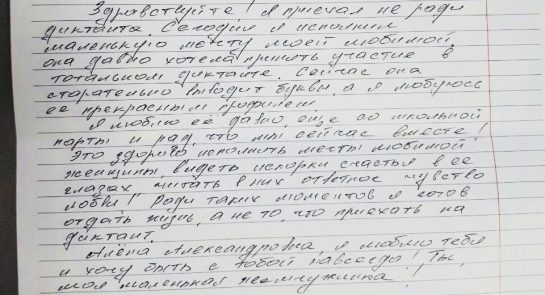 Здравствуйте! Я приехал не ради
диктанта. Сегодня я исполнил
маленькую мечту моей любимой,
она давно хотела принять участие в
тотальном диктанте. Сейчас она
старательно выводит буквы, а я любуюсь
её прекрасным профилем.
Я люблю её давно, ещё со школьной
парты и рад, что мы сейчас вместе!
Это здорово исполнить мечты любимой
женщины, видеть искорки счастья в её
глазах, читать в них ответное чувство
любви! Ради таких моментов я готов
отдать жизнь, а не то, что приехать на
диктант.
Алёна Александровна, я люблю тебя
и хочу быть с тобой навсегда! Ты,
моя маленькая жемчужина!